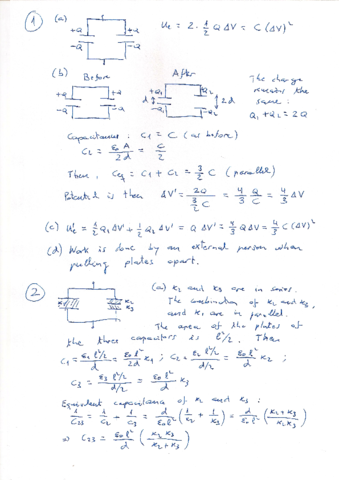 1 (a) U_E = 2 · 1/2 Q ΔV = C (ΔV)²
+Q +Q
-Q -Q
(b) Before After The charge
remains the
same:
Q₁ + Q₂ = 2Q
+Q +Q +Q₁ Q₂
d 2d
-Q -Q -Q₁ -Q₂
Capacitances: C₁ = C (as before)
C₂ = ε₀A/2d = C/2
Then, C_eq = C₁ + C₂ = 3/2 C (parallel)
Potential is then ΔV' = 2Q/(3/2 C) = 4/3 Q/C = 4/3 ΔV
(c) U'_E = 1/2 Q₁ΔV' + 1/2 Q₂ΔV' = QΔV' = 4/3 QΔV = 4/3 C(ΔV)²
(d) Work is done by an external person when
pulling plates apart.
2 (a) κ₂ and κ₃ are in series.
The combination of κ₂ and κ₃,
and κ₁ are in parallel.
κ₁ κ₂
κ₃
The area of the plates of
the three capacitors is ℓ²/2. Then
C₁ = ε₁ℓ²/2/d = ε₀ℓ²/2d κ₁ ; C₂ = ε₂ℓ²/2/d/2 = ε₀ℓ²/d κ₂ ;
C₃ = ε₃ℓ²/2/d/2 = ε₀ℓ²/d κ₃
Equivalent capacitance of κ₂ and κ₃ :
1/C₂₃ = 1/C₂ + 1/C₃ = d/ε₀ℓ² (1/κ₂ + 1/κ₃) = d/ε₀ℓ² (κ₂+κ₃/κ₂κ₃)
⇒ C₂₃ = ε₀ℓ²/d (κ₂κ₃/κ₂+κ₃)